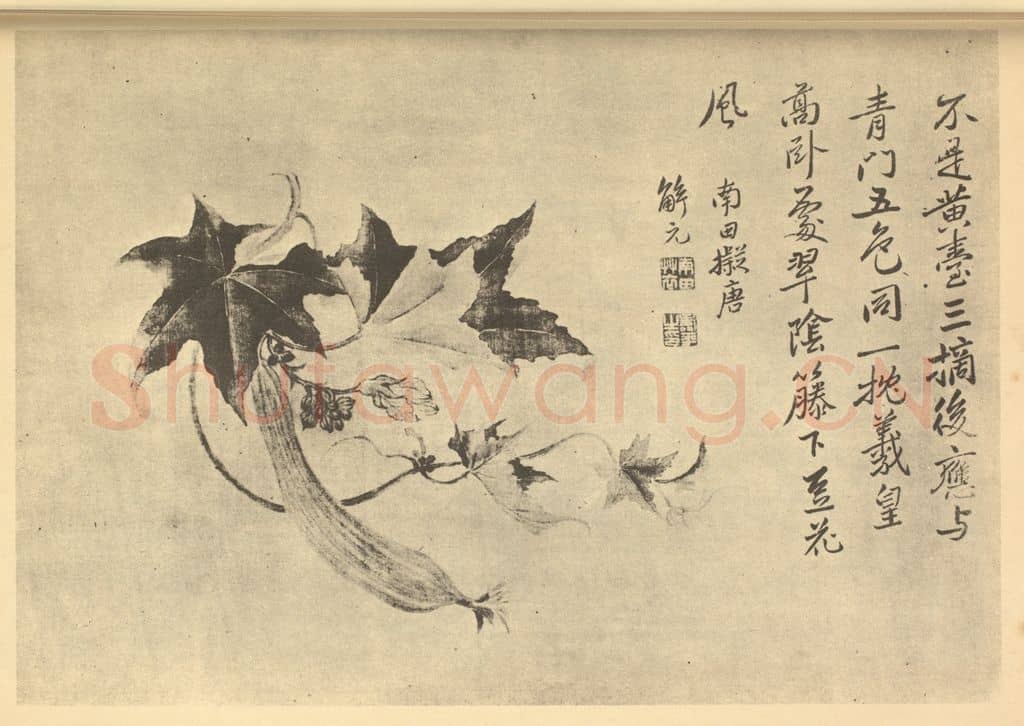 不是黃臺三摘後應与
青门五色同一枕羲皇
高卧處翠陰籐下豆花
風
南田擬唐
解元
Shufawang.CN